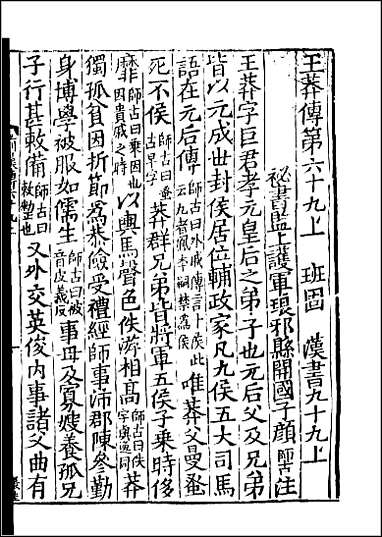 王莽傳第六十九上 班固 漢書九十九上
祕書監上護軍琅邪縣開國子顏師古注
王莽字巨君孝元皇后之弟子也元后父及兄弟
皆以元成世封侯居位輔政家凡九侯五大司馬
語在元后傳師古曰外戚傳言十侯此云九者
禁爲侯唯莽父曼蚤
死不侯師古曰蚤古早字莽群兄弟皆將軍五侯子乗時侈
靡師古曰乗因也因貴戚之時以輿馬聲色佚游相髙師古曰佚字與逸同莽
獨孤貧因折節爲恭儉受禮經師事沛郡陳參勤
身博學被服如儒生師古曰被音皮義反事母及寡嫂養孤兄
子行甚敕備師古曰敕整也又外交英俊内事諸父曲有